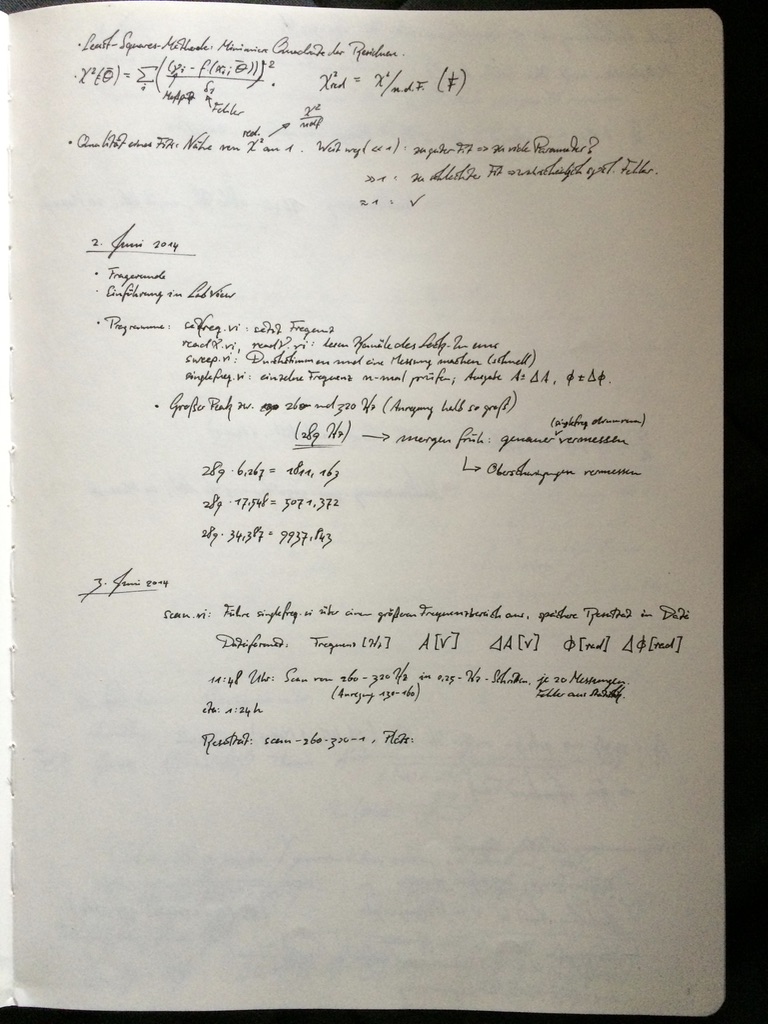 · Least-Squares-Methode: Minimiere Quadrate der Residuen.
· χ²(θ̄) = Σi ((yi - f(xi; θ̄))/δi)². χ²red = χ²/n.d.F. (F)
Meßpkt Fehler
red. χ²/ndf
· Qualität eines Fits: Nähe von χ² an 1. Weit weg (≪1): zu guter Fit ⇒ zu viele Parameter?
≫1: zu schlechter Fit ⇒ wahrscheinlich syst. Fehler.
≈1: ✓
2. Juni 2014
· Fragerunde
· Einführung in LabView
· Programme: setfreq.vi: setzt Frequenz
readX.vi, readY.vi: lesen Kanäle des Lock-In aus
sweep.vi: Durchstimmen und eine Messung machen (schnell)
singlefreq.vi: einzelne Frequenz n-mal prüfen, Ausgabe A±ΔA, φ±Δφ.
· Großer Peak zw. 260 und 320 Hz (Anregung halb so groß)
(singlefreq drumrum)
(289 Hz) → morgen früh: genauer vermessen
↳ Oberschwingungen vermessen
289 · 6,267 = 1811,163
289 · 17,548 = 5071,372
289 · 34,387 = 9937,843
3. Juni 2014
scan.vi: Führe singlefreq.vi über einen größeren Frequenzbereich aus, speichere Resultat in Datei
Dateiformat: Frequenz [Hz] A[V] ΔA[V] Φ[rad] ΔΦ[rad]
11:48 Uhr: Scan von 260-320 Hz in 0,25-Hz-Schritten, je 20 Messungen.
(Anregung 130-160) Fehler aus
eta: 1:24h
Resultat: scan-260-320-1, Plots: